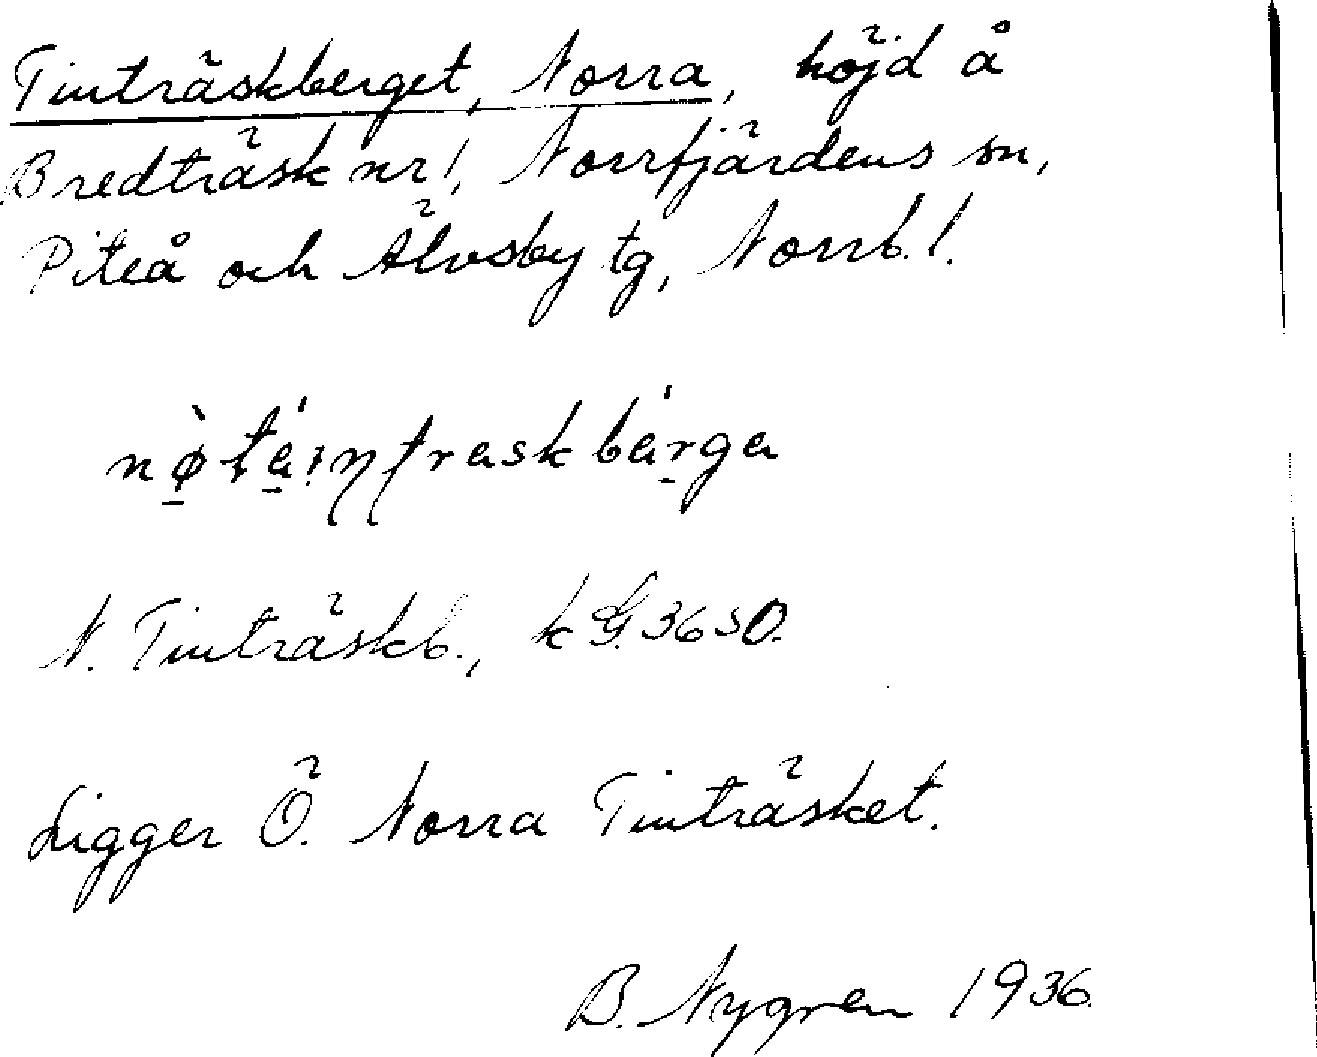 Tinträskberget, Norra, höjd å
Bredträsk nr 1, Norrfjärdens sn,
Piteå och Älvsby tg, Norrb. l.
N. Tinträskb., k G. 36 SO.
Ligger Ö. Norra Tinträsket.
B. Nygren 1936